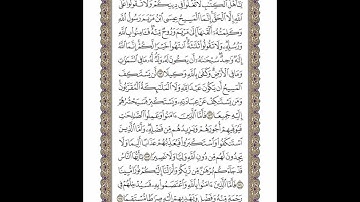 يَٰٓأَهْلَ ٱلْكِتَٰبِ لَا تَغْلُوا۟ فِى دِينِكُمْ وَلَا تَقُولُوا۟ عَلَى
ٱللَّهِ إِلَّا ٱلْحَقَّ إِنَّمَا ٱلْمَسِيحُ عِيسَى ٱبْنُ مَرْيَمَ رَسُولُ ٱللَّهِ
وَكَلِمَتُهُۥٓ أَلْقَىٰهَآ إِلَىٰ مَرْيَمَ وَرُوحٌ مِّنْهُ فَـَٔامِنُوا۟ بِٱللَّهِ
وَرُسُلِهِۦ وَلَا تَقُولُوا۟ ثَلَٰثَةٌ ٱنتَهُوا۟ خَيْرًا لَّكُمْ إِنَّمَا ٱللَّهُ
إِلَٰهٌ وَٰحِدٌ سُبْحَٰنَهُۥٓ أَن يَكُونَ لَهُۥ وَلَدٌ لَّهُۥ مَا فِى ٱلسَّمَٰوَٰتِ
وَمَا فِى ٱلْأَرْضِ وَكَفَىٰ بِٱللَّهِ وَكِيلًا ۝ لَّن يَسْتَنكِفَ
ٱلْمَسِيحُ أَن يَكُونَ عَبْدًا لِّلَّهِ وَلَا ٱلْمَلَٰٓئِكَةُ ٱلْمُقَرَّبُونَ
وَمَن يَسْتَنكِفْ عَنْ عِبَادَتِهِۦ وَيَسْتَكْبِرْ فَسَيَحْشُرُهُمْ
إِلَيْهِ جَمِيعًا ۝ فَأَمَّا ٱلَّذِينَ ءَامَنُوا۟ وَعَمِلُوا۟ ٱلصَّٰلِحَٰتِ
فَيُوَفِّيهِمْ أُجُورَهُمْ وَيَزِيدُهُم مِّن فَضْلِهِۦ وَأَمَّا ٱلَّذِينَ
ٱسْتَنكَفُوا۟ وَٱسْتَكْبَرُوا۟ فَيُعَذِّبُهُمْ عَذَابًا أَلِيمًا وَلَا
يَجِدُونَ لَهُم مِّن دُونِ ٱللَّهِ وَلِيًّا وَلَا نَصِيرًا ۝ يَٰٓأَيُّهَا ٱلنَّاسُ
قَدْ جَآءَكُم بُرْهَٰنٌ مِّن رَّبِّكُمْ وَأَنزَلْنَآ إِلَيْكُمْ نُورًا مُّبِينًا
۝ فَأَمَّا ٱلَّذِينَ ءَامَنُوا۟ بِٱللَّهِ وَٱعْتَصَمُوا۟ بِهِۦ فَسَيُدْخِلُهُمْ فِى
رَحْمَةٍ مِّنْهُ وَفَضْلٍ وَيَهْدِيهِمْ إِلَيْهِ صِرَٰطًا مُّسْتَقِيمًا ۝